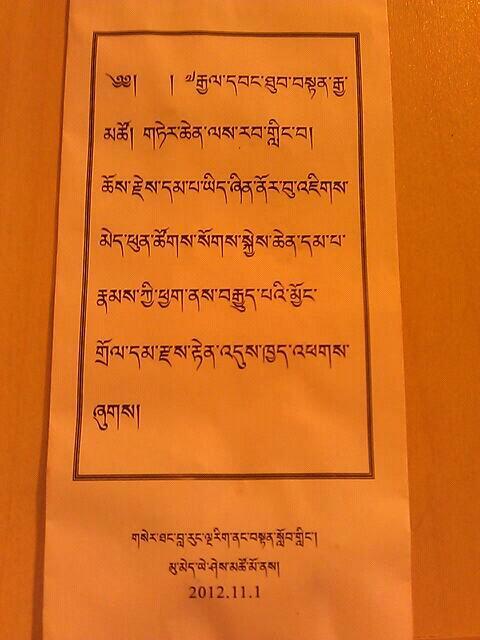 ༄༅།    ། ༧རྒྱལ་དབང་ཐུབ་བསྟན་རྒྱ་
མཚོ། གཏེར་ཆེན་ལས་རབ་གླིང་བ།
ཆོས་རྗེས་དམ་པ་ཡིད་ཞིན་ནོར་བུ་འཇིགས་
མེད་ཕུན་ཚོགས་སོགས་སྐྱེས་ཆེན་དམ་པ་
རྣམས་ཀྱི་ཕྱག་ནས་བརྒྱུད་པའི་མྱོང་
གྲོལ་དམ་རྫས་རྟེན་འདུས་ཁྱད་འཕགས་
བཞུགས།
གསེར་ཐང་བླ་རུང་ལྔ་རིག་ནང་བསྟན་སློབ་གླིང་།
མུ་མེད་ཡེ་ཤེས་མཚོ་མོ་ནས།
2012.11.1